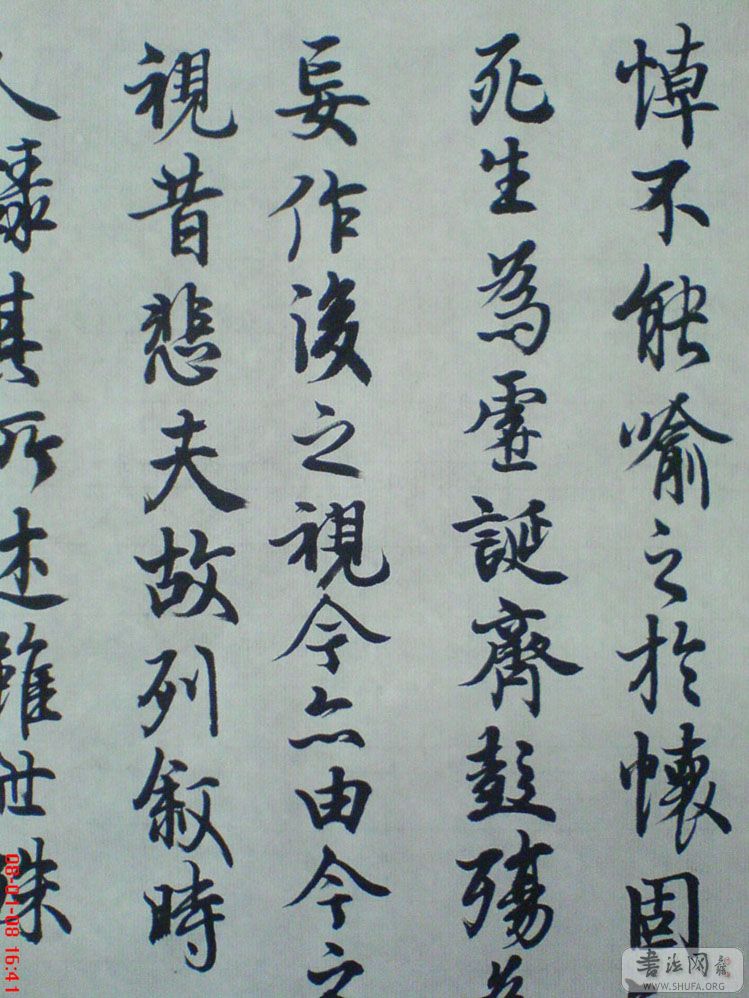 悼不能喻之於懷固
死生為虛誕齊彭殤為
妄作後之視今亦由今之
視昔悲夫故列敘時
人錄其所述雖世殊
08-01-08 16:41
書法网
WWW.SHUFA.ORG